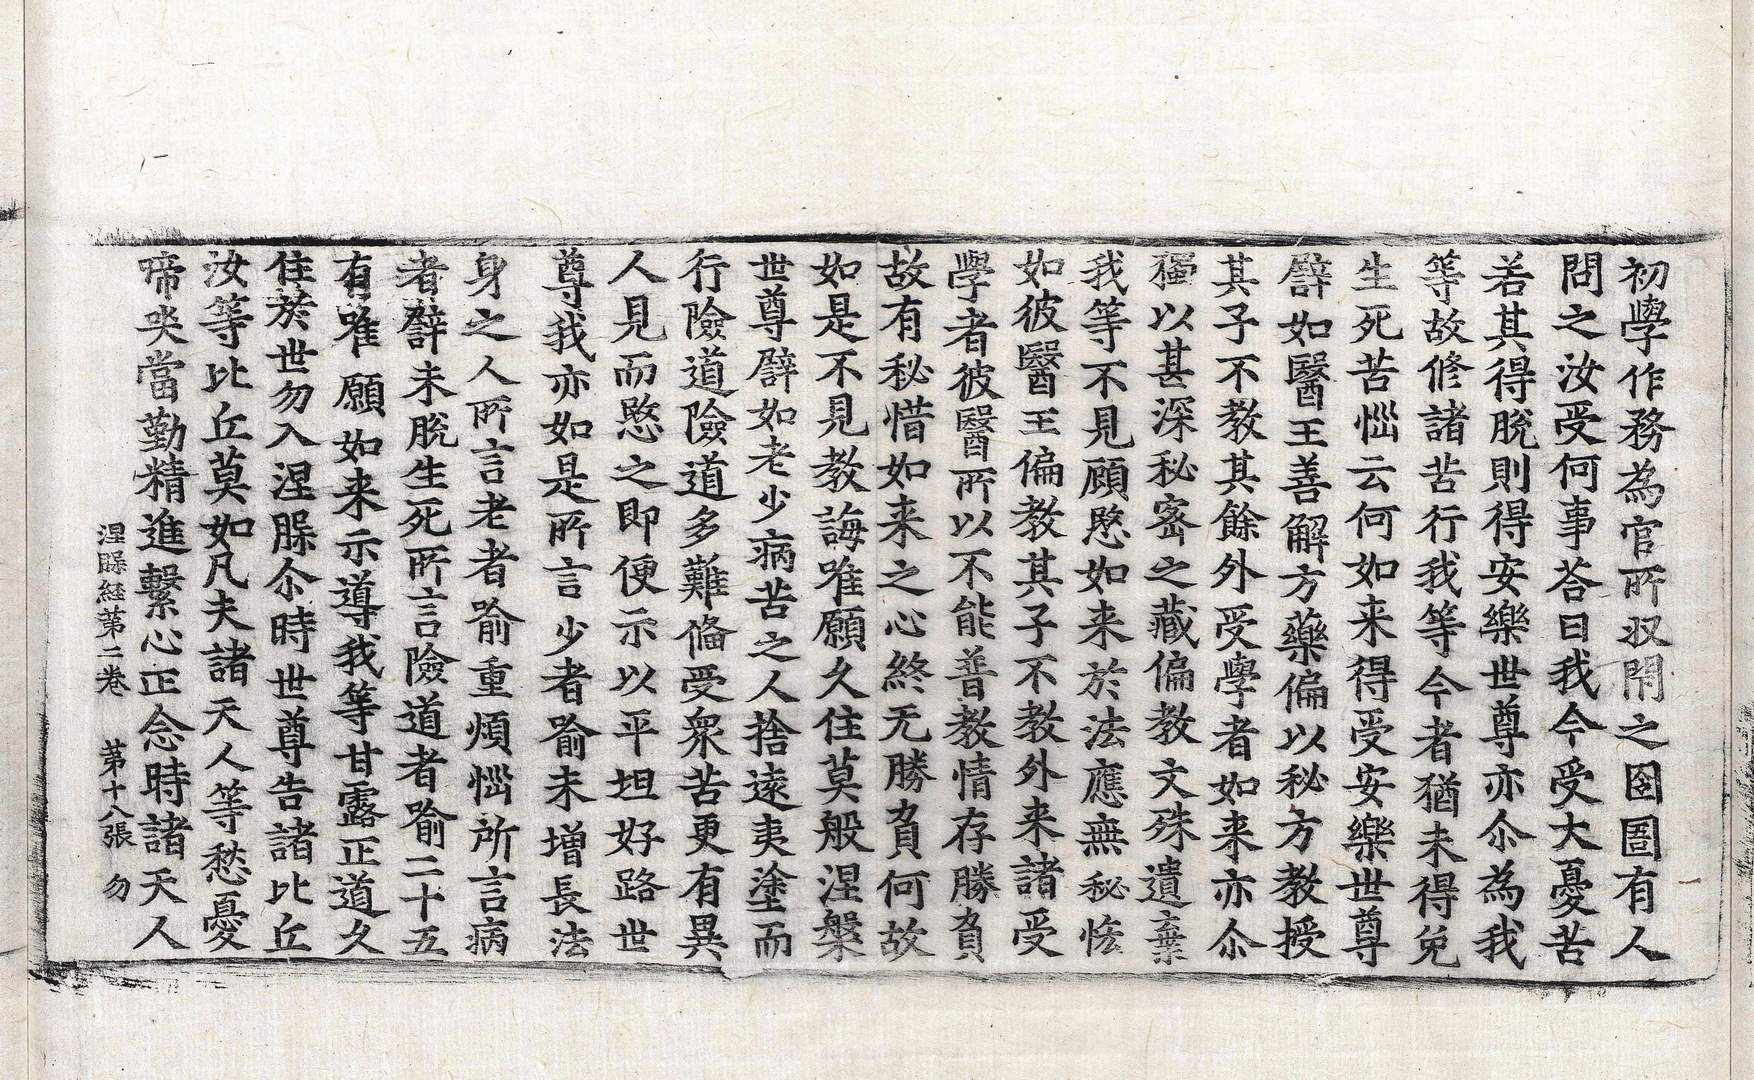 初學作務為官所収閉之囹圄有人
問之汝受何事荅曰我今受大憂苦
若其得脫則得安樂世尊亦尒為我
等故修諸苦行我等今者猶未得免
生死苦惱云何如来得受安樂世尊
譬如醫王善解方藥偏以秘方教授
其子不教其餘外受學者如来亦尒
獨以甚深秘密之藏偏教文殊遺棄
我等不見顧愍如来於法應無秘悋
如彼醫王偏教其子不教外来諸受
學者彼醫所以不能普教情存勝負
故有秘惜如来之心終无勝負何故
如是不見教誨唯願久住莫般涅槃
世尊譬如老少病苦之人捨遠夷塗而
行險道險道多難備受衆苦更有異
人見而愍之即便示以平坦好路世
尊我亦如是所言少者喻未增長法
身之人所言老者喻重煩惱所言病
者譬未脫生死所言險道者喻二十五
有唯願如来示導我等甘露正道久
住於世勿入涅槃尒時世尊告諸比丘
汝等比丘莫如凡夫諸天人等愁憂
啼哭當勤精進繫心正念時諸天人
涅槃経第二卷 第十八張 勿